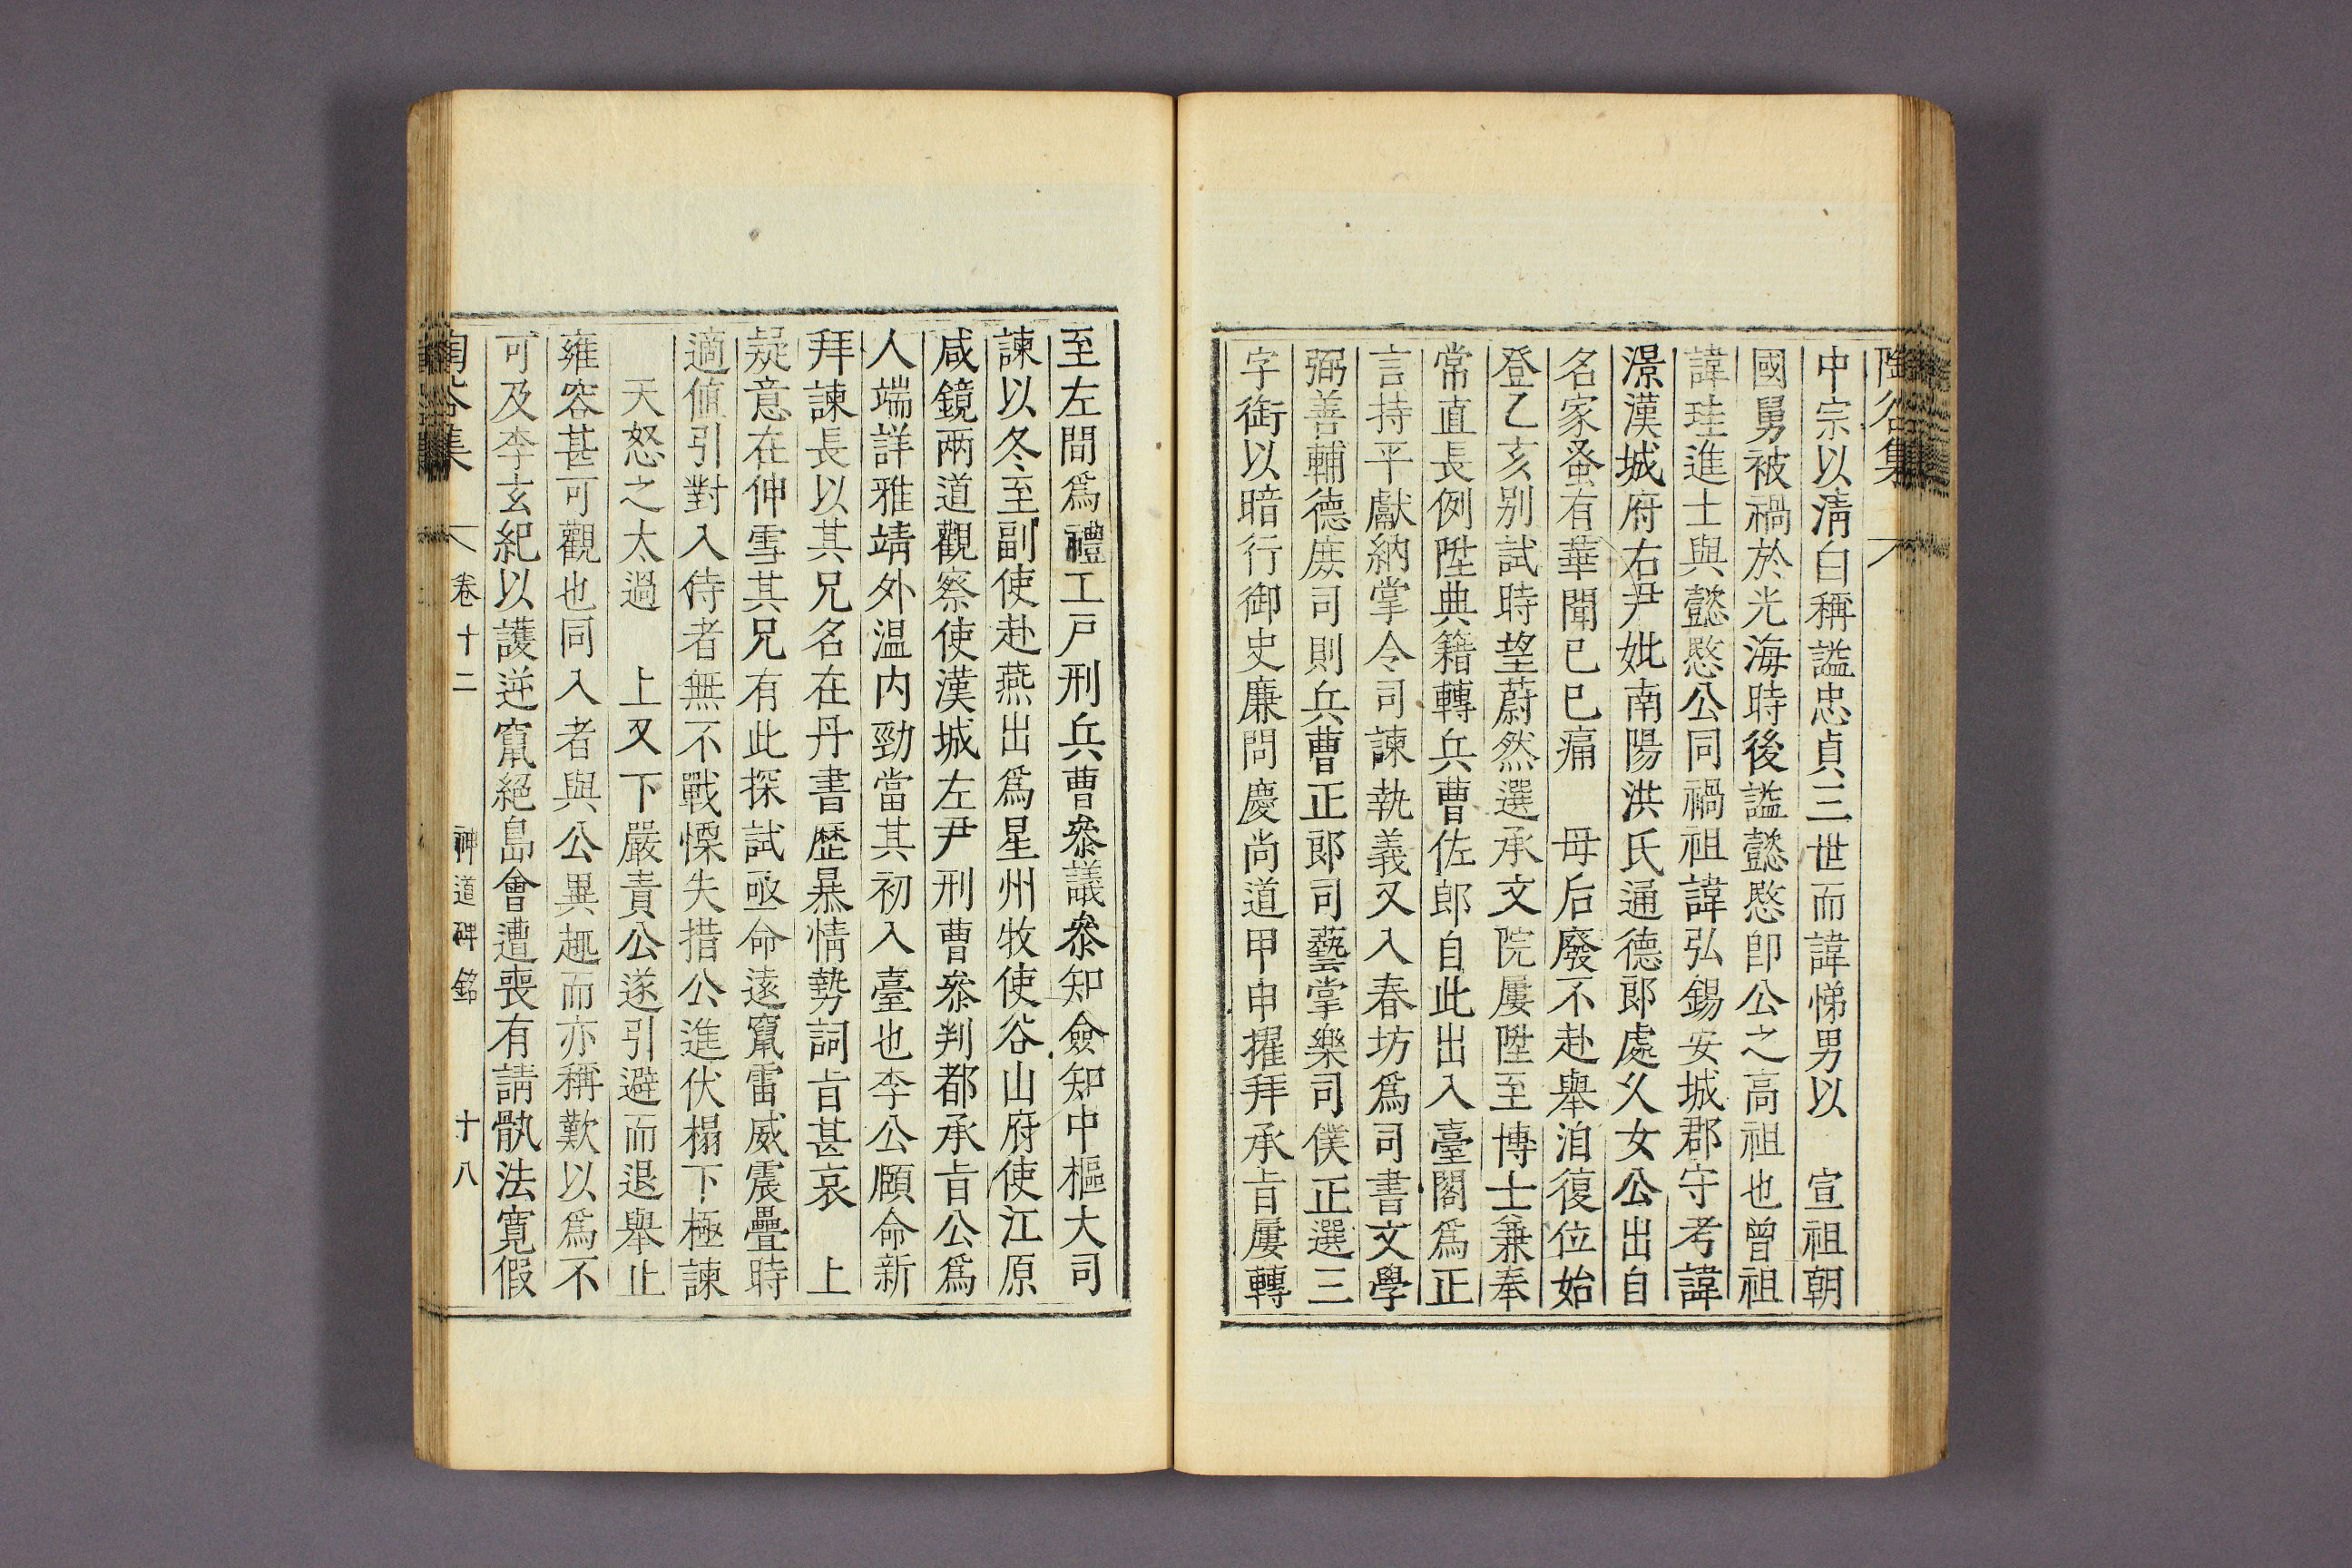 陶谷集
中宗以淸白稱謚忠貞三世而諱悌男以　宣祖朝
國舅被禍於光海時後謚懿愍卽公之高祖也曾祖
諱珪進士與懿愍公同禍祖諱弘錫安城郡守考諱
澋漢城府右尹妣南陽洪氏通德郞處乂女公出自
名家蚤有華聞己巳痛　母后廢不赴舉洎復位始
登乙亥别試時望蔚然選承文院屢陞至博士兼奉
常直長例陞典籍轉兵曹佐郞自此出入臺閣爲正
言持平獻納掌令司諫執義又入春坊爲司書文學
弼善輔德庶司則兵曹正郞司藝掌樂司僕正選三
字銜以暗行御史廉問慶尚道甲申擢拜承旨屢轉
至左間爲禮工戶刑兵曹叅議叅知僉知中樞大司
諫以冬至副使赴燕出爲星州牧使谷山府使江原
咸鏡兩道觀察使漢城左尹刑曹叅判都承旨公爲
人端詳雅靖外温内勁當其初入臺也李公頤命新
拜諫長以其兄名在丹書歷暴情勢詞旨甚哀　上
疑意在伸雪其兄有此探試亟命遠竄雷威震疊時
適値引對入侍者無不戰慄失措公進伏榻下極諫
天怒之太過　上又下嚴責公遂引避而退舉止
雍容甚可觀也同入者與公異趣而亦稱歎以爲不
可及李玄紀以護逆竄絕島會遭喪有請骩法寬假
陶谷集　卷十二　神道碑銘　十八